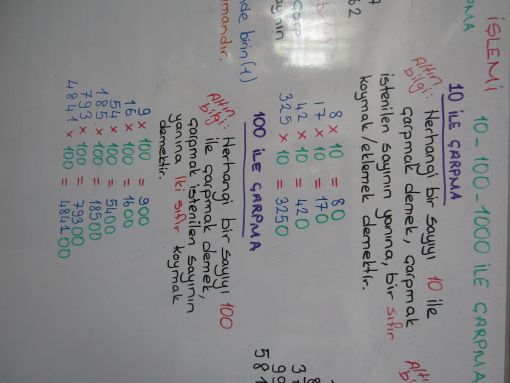 İŞLEMİ
10-100-1000 İLE ÇARPMA
10 İLE ÇARPMA
Altın bilgi: Herhangi bir sayıyı 10 ile
çarpmak demek, çarpmak
istenilen sayının yanına, bir sıfır
koymak /eklemek demektir.
8 x 10 = 80
17 x 10 = 170
42 x 10 = 420
325 x 10 = 3250
100 İLE ÇARPMA
Altın bilgi: Herhangi bir sayıyı 100
ile çarpmak demek,
çarpmak istenilen sayının
yanına iki sıfır koymak
demektir.
9 x 100 = 900
16 x 100 = 1600
54 x 100 = 5400
185 x 100 = 18500
793 x 100 = 79300
4841 x 100 = 484100
nde birin (1)
mandır.